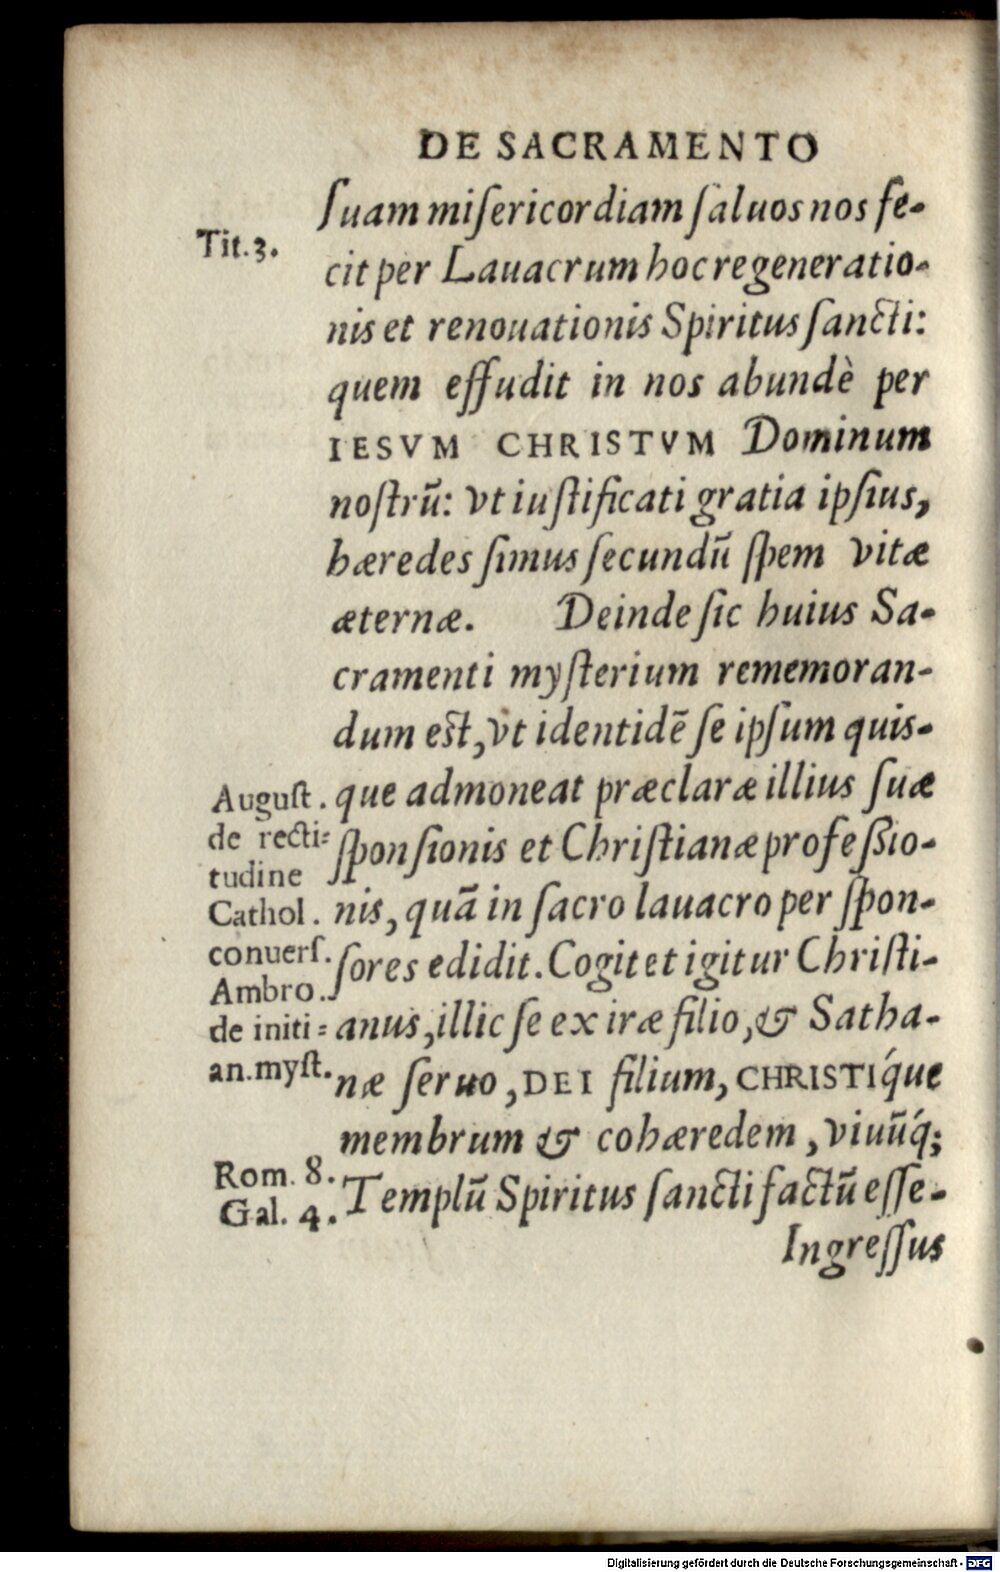 DE SACRAMENTO
ſuam miſericordiam ſaluos nos fe-
Tit. 3.
cit per Lauacrum hoc regeneratio-
nis et renouationis Spiritus ſancti:
quem effudit in nos abundè per
IESVM CHRISTVM Dominum
noſtrū: vt iuſtificati gratia ipſius,
hæredes ſimus ſecundū ſpem vitæ
æternæ. Deinde ſic huius Sa-
cramenti myſterium rememoran-
dum eſt, vt identidē ſe ipſum quis-
que admoneat præclaræ illius ſuæ
ſponſionis et Chriſtianæ profeßio-
nis, quā in ſacro lauacro per ſpon-
ſores edidit. Cogitet igitur Chriſti-
anus, illic ſe ex iræ filio, & Satha-
næ ſeruo, DEI filium, CHRISTIq́ue
membrum & cohæredem, viuūq́;
Templū Spiritus ſancti factū eſſe.
Ingreſſus
Auguſt.
de recti=
tudine
Cathol.
conuerſ.
Ambro.
de initi=
an. myſt.
Rom. 8.
Gal. 4.
Digitalisierung gefördert durch die Deutsche Forschungsgemeinschaft - DFG